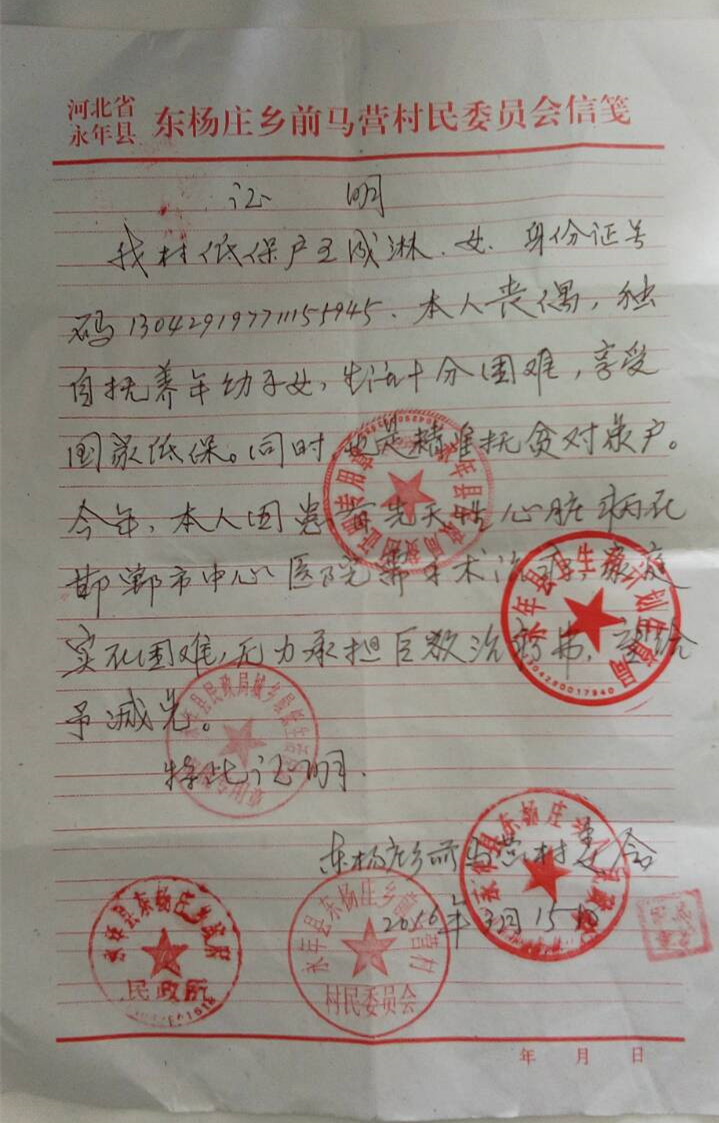 河北省
永年县 东杨庄乡前马营村民委员会信笺
证 明
我村低保户王成淋、女、身份证号
码130429197711155945、本人丧偶，独
自抚养年幼子女，生活十分困难，享受
国家低保。同时也是精准扶贫对象户。
今年，本人因患有先天性心脏病在
邯郸市中心医院需手术治病，家庭
实在困难，无力承担巨额治病费，望给
予减免。
特此证明.
东杨庄乡前马营村委会
2016年3月15日
永年县东杨庄乡政府
民政所
永年县东杨庄乡前马营村
村民委员会
年 月 日